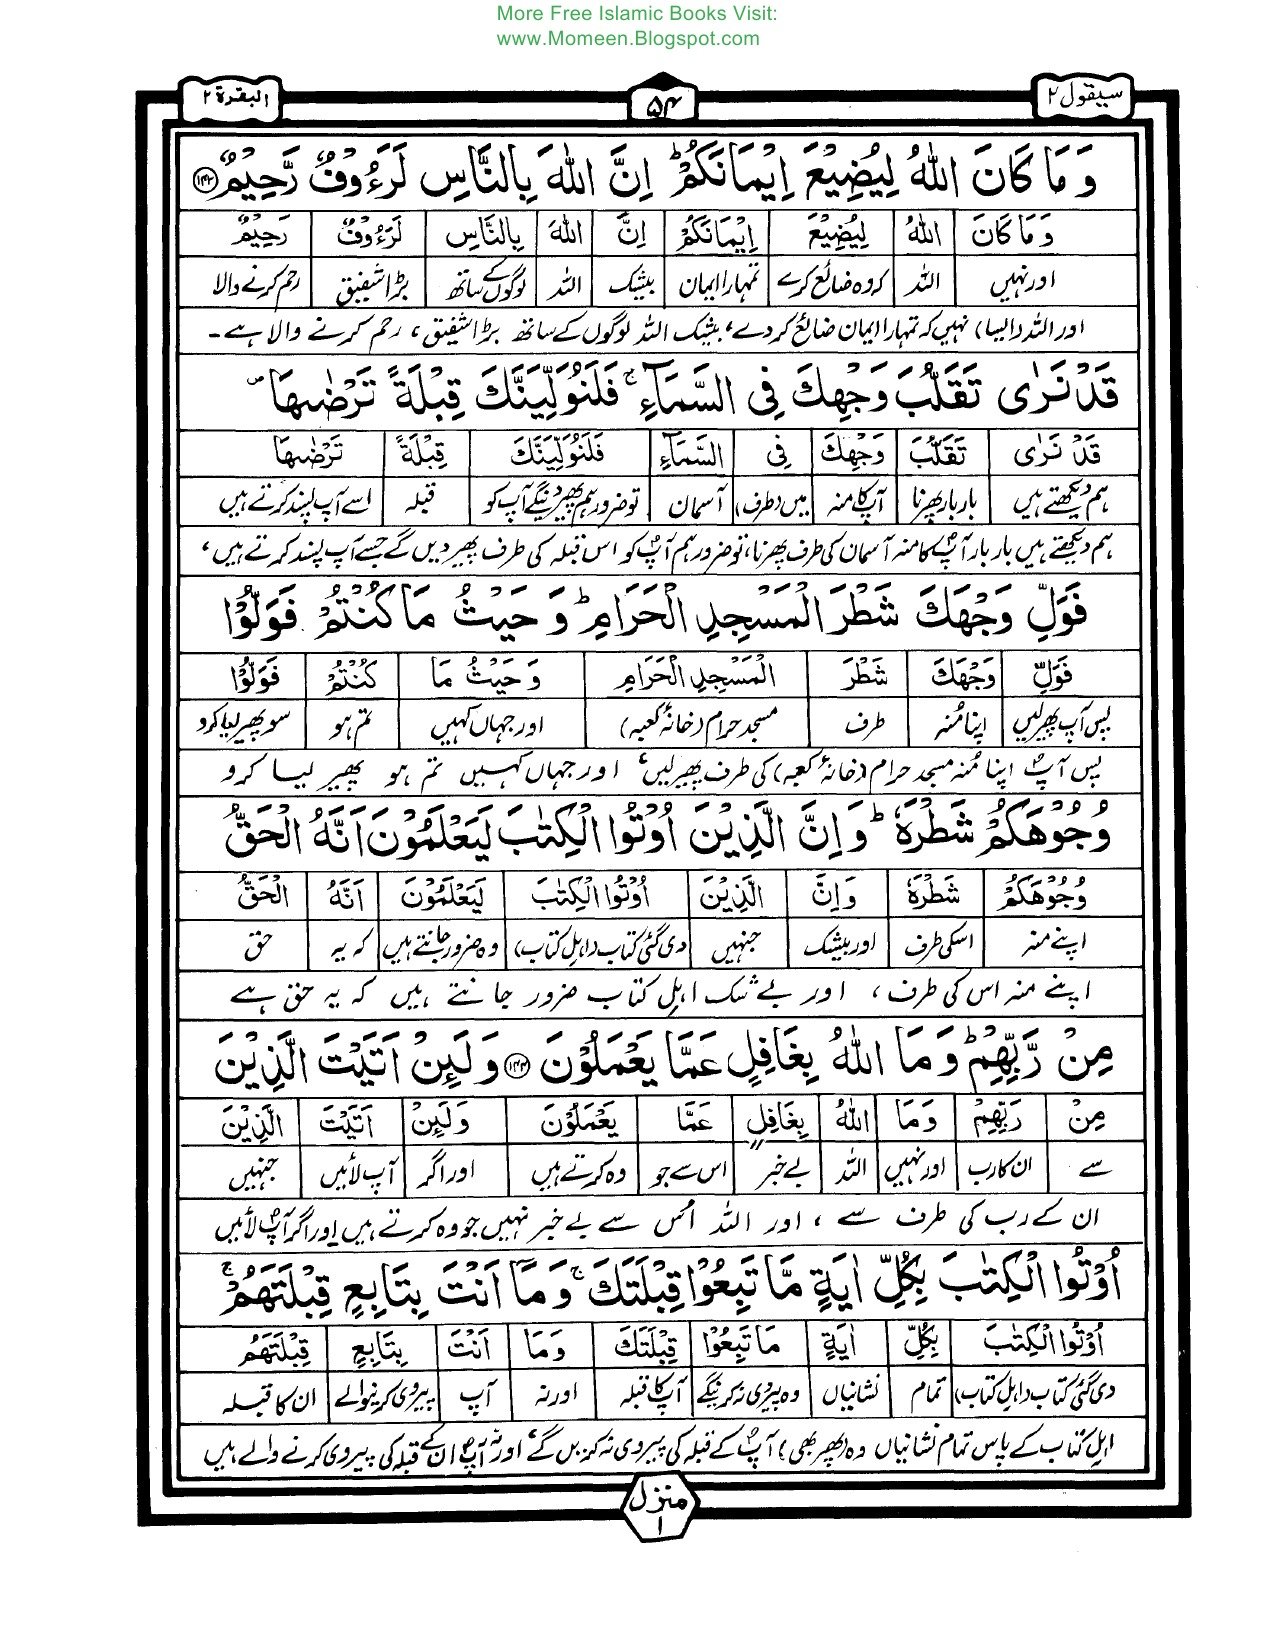 More Free Islamic Books Visit:
www.Momeen.Blogspot.com
سيقول ٢ ۵۴ البقرة ٢
وَمَا كَانَ اللّٰهُ لِيُضِيْعَ اِيْمَانَكُمْ ؕ اِنَّ اللّٰهَ بِالنَّاسِ لَرَءُوْفٌ رَّحِيْمٌ ۝۱۴۳
وَمَا كَانَ اللّٰهُ لِيُضِيْعَ اِيْمَانَكُمْ اِنَّ اللّٰهَ بِالنَّاسِ لَرَءُوْفٌ رَحِيْمٌ
اور نہیں اللہ کہ وہ ضائع کرے تمہارا ایمان بیشک اللہ لوگوں کے ساتھ بڑا شفیق رحم کرنے والا
اور اللہ (ایسا) نہیں کہ تمہارا ایمان ضائع کر دے، بیشک اللہ لوگوں کے ساتھ بڑا شفیق، رحم کرنے والا ہے۔
قَدْ نَرٰى تَقَلُّبَ وَجْهِكَ فِى السَّمَآءِ ۚ فَلَنُوَلِّيَنَّكَ قِبْلَةً تَرْضٰىهَا ۪
قَدْ نَرٰى تَقَلُّبَ وَجْهِكَ فِى السَّمَآءِ فَلَنُوَلِّيَنَّكَ قِبْلَةً تَرْضٰىهَا
ہم دیکھتے ہیں بار بار پھرنا آپ کا منہ میں (طرف) آسمان تو ضرور ہم پھیر دینگے آپ کو قبلہ اسے آپ پسند کرتے ہیں
ہم دیکھتے ہیں بار بار آپؐ کا منہ آسمان کی طرف پھرنا، تو ضرور ہم آپؐ کو اس قبلہ کی طرف پھیر دیں گے جسے آپ پسند کرتے ہیں،
فَوَلِّ وَجْهَكَ شَطْرَ الْمَسْجِدِ الْحَرَامِ ؕ وَحَيْثُ مَا كُنْتُمْ فَوَلُّوْا
فَوَلِّ وَجْهَكَ شَطْرَ الْمَسْجِدِ الْحَرَامِ وَحَيْثُ مَا كُنْتُمْ فَوَلُّوْا
پس آپ پھیر لیں اپنا مُنہ طرف مسجد حرام (خانۂ کعبہ) اور جہاں کہیں تم ہو سو پھیر لیا کرو
پس آپؐ اپنا مُنہ مسجد حرام (خانۂ کعبہ) کی طرف پھیر لیں، اور جہاں کہیں تم ہو پھیر لیا کرو
وُجُوْهَكُمْ شَطْرَهٗ ؕ وَاِنَّ الَّذِيْنَ اُوْتُوا الْكِتٰبَ لَيَعْلَمُوْنَ اَنَّهُ الْحَقُّ
وُجُوْهَكُمْ شَطْرَهٗ وَاِنَّ الَّذِيْنَ اُوْتُوا الْكِتٰبَ لَيَعْلَمُوْنَ اَنَّهُ الْحَقُّ
اپنے منہ اسکی طرف اور بیشک جنہیں دی گئی کتاب (اہل کتاب) وہ ضرور جانتے ہیں کہ یہ حق
اپنے منہ اس کی طرف، اور بے شک اہل کتاب ضرور جانتے ہیں کہ یہ حق ہے
مِنْ رَّبِّهِمْ ؕ وَمَا اللّٰهُ بِغَافِلٍ عَمَّا يَعْمَلُوْنَ ۝۱۴۴ وَلَئِنْ اَتَيْتَ الَّذِيْنَ
مِنْ رَبِّهِمْ وَمَا اللّٰهُ بِغَافِلٍ عَمَّا يَعْمَلُوْنَ وَلَئِنْ اَتَيْتَ الَّذِيْنَ
سے ان کا رب اور نہیں اللہ بے خبر اس سے جو وہ کرتے ہیں اور اگر آپ لائیں جنہیں
ان کے رب کی طرف سے، اور اللہ اُس سے بے خبر نہیں جو وہ کرتے ہیں اور اگر آپؐ لائیں
اُوْتُوا الْكِتٰبَ بِكُلِّ اٰيَةٍ مَّا تَبِعُوْا قِبْلَتَكَ ۚ وَمَاۤ اَنْتَ بِتَابِعٍ قِبْلَتَهُمْ ۚ
اُوْتُوا الْكِتٰبَ بِكُلِّ اٰيَةٍ مَا تَبِعُوْا قِبْلَتَكَ وَمَا اَنْتَ بِتَابِعٍ قِبْلَتَهُمْ
دی گئی کتاب (اہل کتاب) تمام نشانیاں وہ پیروی نہ کرینگے آپ کا قبلہ اور نہ آپ پیروی کرنیوالے ان کا قبلہ
اہل کتاب کے پاس تمام نشانیاں وہ (پھر بھی) آپؐ کے قبلہ کی پیروی نہ کریں گے، اور نہ آپؐ ان کے قبلہ کی پیروی کرنے والے ہیں
منزل
۱